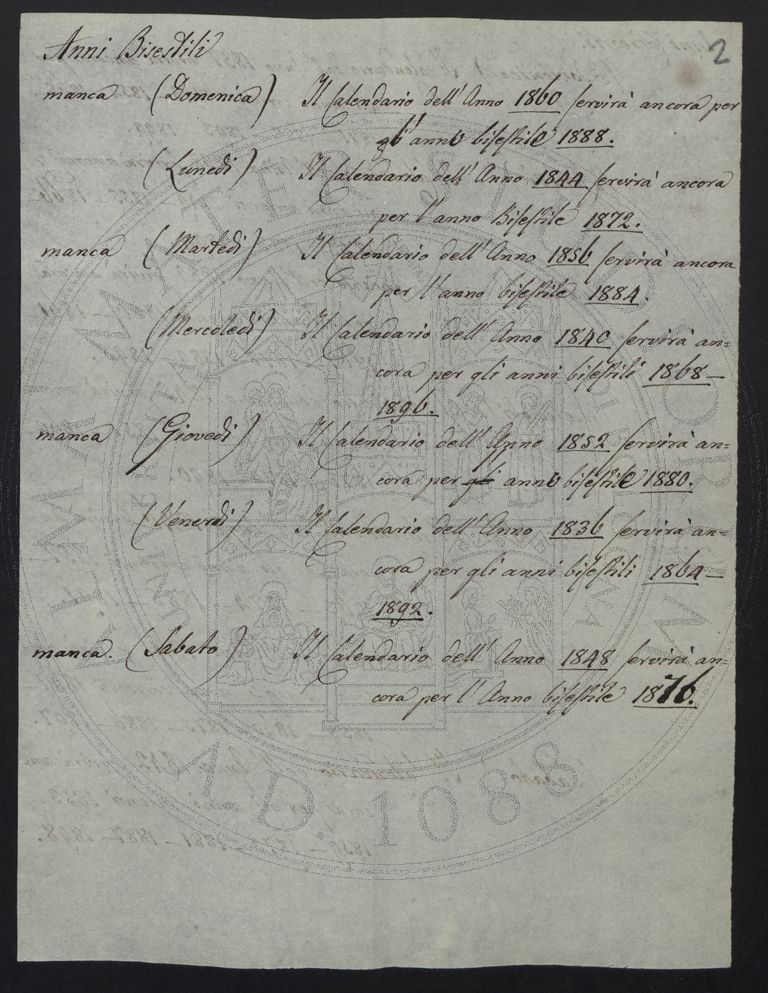 2
Anni Bisestili
manca (Domenica) Il Calendario dell'Anno 1860 servirà ancora per
l'anno bisestile 1888.
(Lunedì) Il Calendario dell'Anno 1844 servirà ancora
per l'anno Bisestile 1872.
manca (Martedì) Il Calendario dell'Anno 1856 servirà ancora
per l'anno bisestile 1884.
(Mercoledì) Il Calendario dell'Anno 1840 servirà an=
cora per gli anni bisestili 1868—
1896.
manca (Giovedì) Il Calendario dell'Anno 1852 servirà an=
cora per gli anno bisestile 1880.
(Venerdì) Il Calendario dell'Anno 1836 servirà an=
cora per gli anni bisestili 1864—
1892.
manca. (Sabato) Il Calendario dell'Anno 1848 servirà an=
cora per l'Anno bisestile 1876.
ALMA MATER STUDIORUM
AD 1088